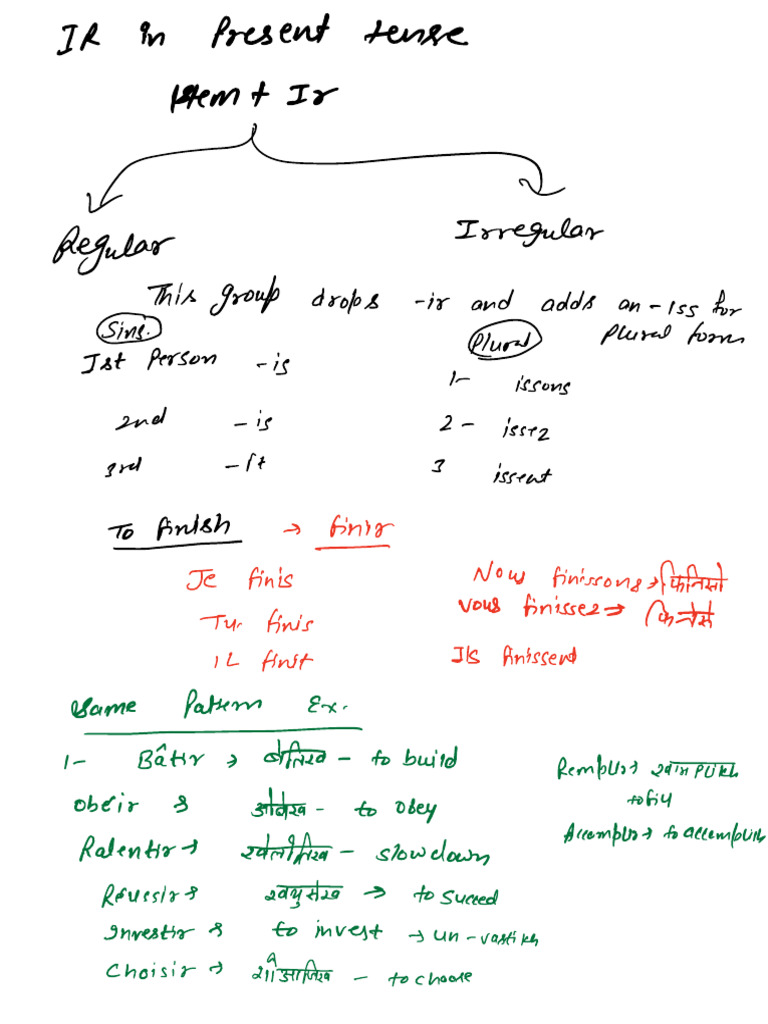 IR in Present tense
Stem + Ir
Regular
Irregular
This group drops -ir and adds an -iss for
Plural form
Sing.
Plural
Ist Person -is
1- issons
2nd -is
2- issez
3rd -it
3 issent
To finish → finir
Je finis
Nous finissons → फिनिसों
Tu finis
vous finissez → फिनेसे
IL finit
Ils finissent
Same Pattern Ex.
1- Bâtir → - to build
Remplir →
to fill
Obéir → - to obey
Accomplir → to accomplish
Ralentir → - slow down
Réussir → → to Succeed
Investir → to invest →
Choisir → - to choose